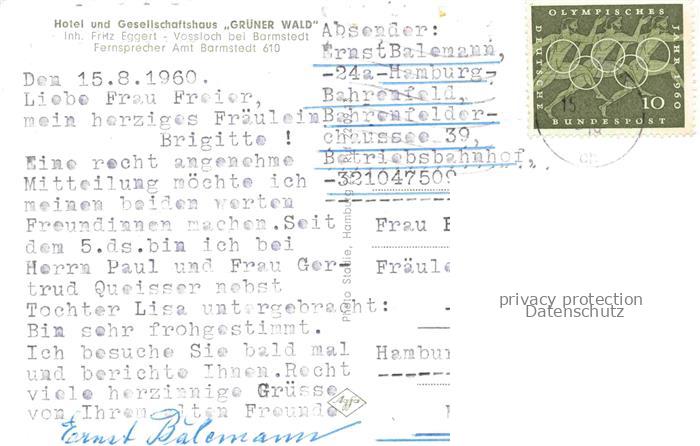 Hotel und Gesellschaftshaus „GRÜNER WALD"
Inh. Fritz Eggert - Vossloch bei Barmstedt
Fernsprecher Amt Barmstedt 610
Den 15.8.1960.
Liebe Frau Freier,
mein herziges Fräulein
Brigitte !
Eine recht angenehme
Mitteilung möchte ich
meinen beiden werten
Freundinnen machen.Seit
dem 5.ds.bin ich bei
Herrn Paul und Frau Ger-
trud Queisser nebst
Tochter Lisa untergebracht:
Bin sehr frohgestimmt.
Ich besuche Sie bald mal
und berichte Ihnen.Recht
viele herzinnige Grüsse
von Ihrem alten Freunde
Ernst Bälemann
Absender:
ErnstBalemann,
-24a-Hamburg-
Bahrenfeld,
Bahrenfelder-
chaussee 39,
Betriebsbahnhof,
-321047509
Photo Studie, Hamburg
Frau
Fräule
Hambur
OLYMPISCHES
JAHR 1960
DEUTSCHE
BUNDESPOST
10
15
privacy protection
Datenschutz